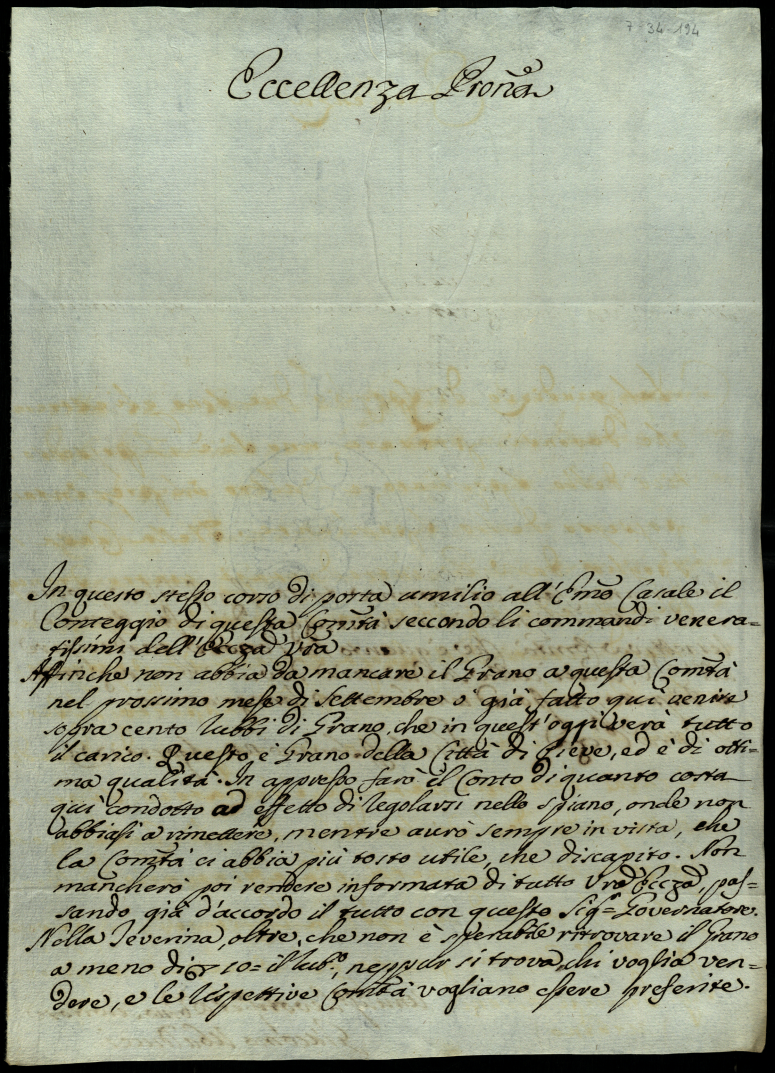 7-34-194
Eccellenza Proñā
In questo stesso corso di posta umilio all'Emo Casale il
Conteggio di questa Comtà secondo li commandi venera=
tissimi dell'Eccza Vra
Affinche non abbia da mancare il Grano a questa Comtà
nel prossimo mese di Settembre ò già fatto quì venire
sopra cento Rubbi di Grano, che in quest'oggi verà tutto
il carico. Questo è Grano della Città di Pieve, ed è di otti=
ma qualità. In appresso farò il Conto di quanto costa
quì condotto ad effetto di regolarsi nello spiano, onde non
abbiasi a rimettere, mentre aurò sempre in vista, che
la Comtà ci abbia più tosto utile, che discapito. Non
mancherò poi rendere informata di tutto Vra Eccza, pas=
sando già d'accordo il tutto con questo Sigr Governatore.
Nolla Teverina, oltre che non è sperabile ritrovare il Grano
a meno di 10= il Rubo, neppur si trova chi voglia ven=
dere, e le rispettive Comtà vogliano essere preferite.